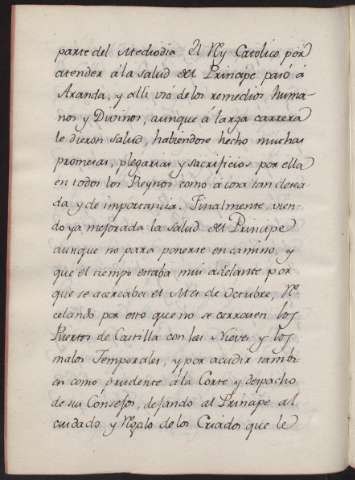 parte del Mediodia El Rẏ Catolico por
atender á la salud del Principe paró á
Aranda, y alli usó de los remedios huma-
nos y Divinos, aunque á larga carrera
le dieron salud, habiendose hecho muchas
promesas, plegarias y sacrificios por ella
en todos los Reynos como á cosa tan desea
da y de importancia. Finalmente vien-
do ya mejorada la salud del Principe
aunque no para ponerse en camino, y
que el tiempo estaba mui adelante por
que se acercaba el Mes de Octubre, Re
celando por esto que no se cerrasen los
Puertos de Castilla con las Nieves y los
malos Temporales, y por acudir tambi
en como prudente á la Corte y despacho
de sus Consejos, dejando al Principe al
cuidado y Regalo de los Criados que le